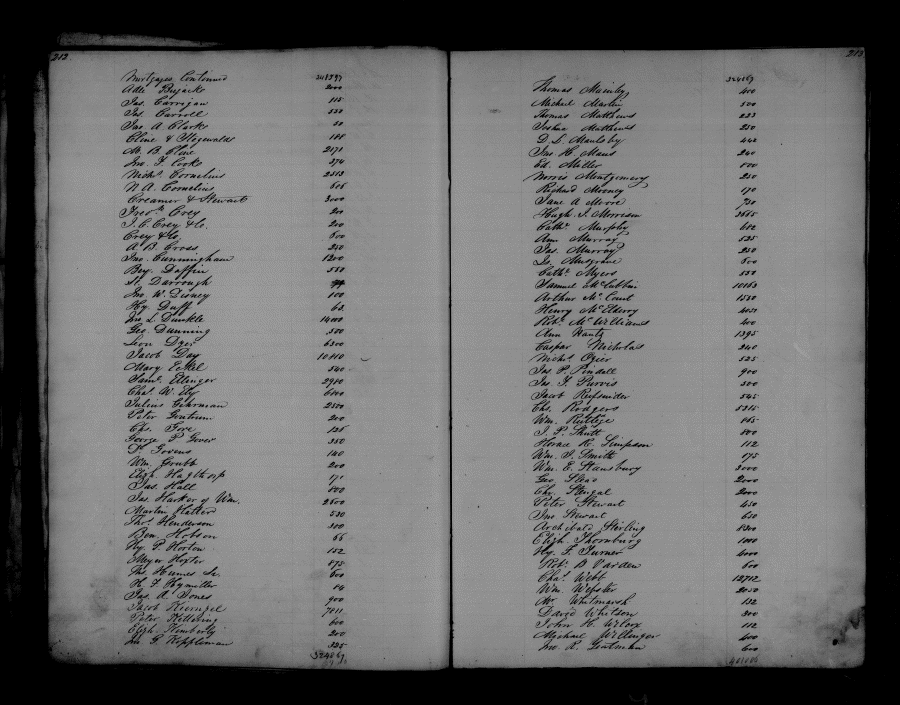 212
Mortgages Continued 248397
Ade 200
Jas. Carrigan 115
Jas. Carroll 550
Jas. A Clarke 50
Cline & 188
M. B. Cline 2171
Jno. T. Cooke 374
Nichs. Cornelius 2513
N. A. Cornelius 606
Creamer & Stewart 3000
Fredk. Crey 200
J. C. Crey & Co. 200
Crey & Co. 600
A. B. Cross 250
Jno. Cunningham 1200
Benj. Daffin 550
Darrough
Jno. W. Disney 100
Hy. Duff 63
Jno. L. Dunkle 14000
Geo Dunning 500
Leon Dyer 6300
Jacob Day 10410
Mary Eckel 540
Saml. Ellinger 2910
Chas. W. Ely
Julius Gehrman 2500
Peter Gontrum 200
Chs. Gore 125
George P Gover 350
Dr Govens 140
Wm. Grubb 200
Eliza. Hagthrop
Jas. Hall 600
Jas. Harker of Wm. 2500
Martin Hatter 550
Thos. Henderson 300
Ben. Hobson 66
Hy. P. Horton 152
Meyer Hoxter 875
Thos. Humes Sr. 600
H. F. 
Jas. A Jones 900
Jacob 7811
Peter 600
Eliza. Kimberly 200
Jno. G. Keppleman 325
324869
213
324869
Thomas 400
Michael Martin 500
Thomas Matthews 233
Joshua Matthews 250
D. L. Maulsby 442
Jno. H. Maus 240
Ed. Miller 800
Norris Montgomery 250
Richard Mooney 170
Jane A Moore 730
Hugh. J. Morrison 3665
Cathe. Murphy 612
Ann Murray 525
Jas. Murray 250
Musgrave 600
Cathe. Myers 550
Samuel McCubbin 10163
Arthur McCourt 1550
Henry McElderry 4050
Robt. McWilliams 400
Ann 1395
Caspar Nicholas 240
Nichs. Ozier 525
Jas P. Pindell 900
Jas. F. Purvis 500
Jacob Reifsnider 545
Chs. Rodgers 5315
Wm. Rutlige 865
J. P. Shutt 800
Horace R. Simpson 112
Wm. J. Smith 875
Wm. E. Stansbury 3000
Geo. 2000
Chr. 2000
Peter Stewart 450
Jno Stewart 650
Archibald Sterling 8300
Eliza. Thornburg 1000
Hy. F. Turner 4000
Robt. B Varden 600
Chas. Webb 12712
Wm. Webster 2050
Whitmarsh 132
David Whitson 300
John H. Wilcox 112
Michael 400
Jno. R. 600